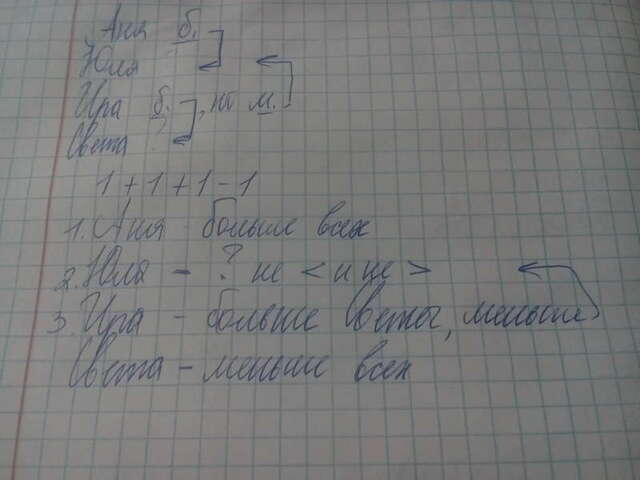 Аня б.
Юля ?
Ира б., но м.
Света ?
1+1+1-1
1. Аня - больше всех
2. Юля - ? не < и не >
3. Ира - больше Светы, меньше
Света - меньше всех